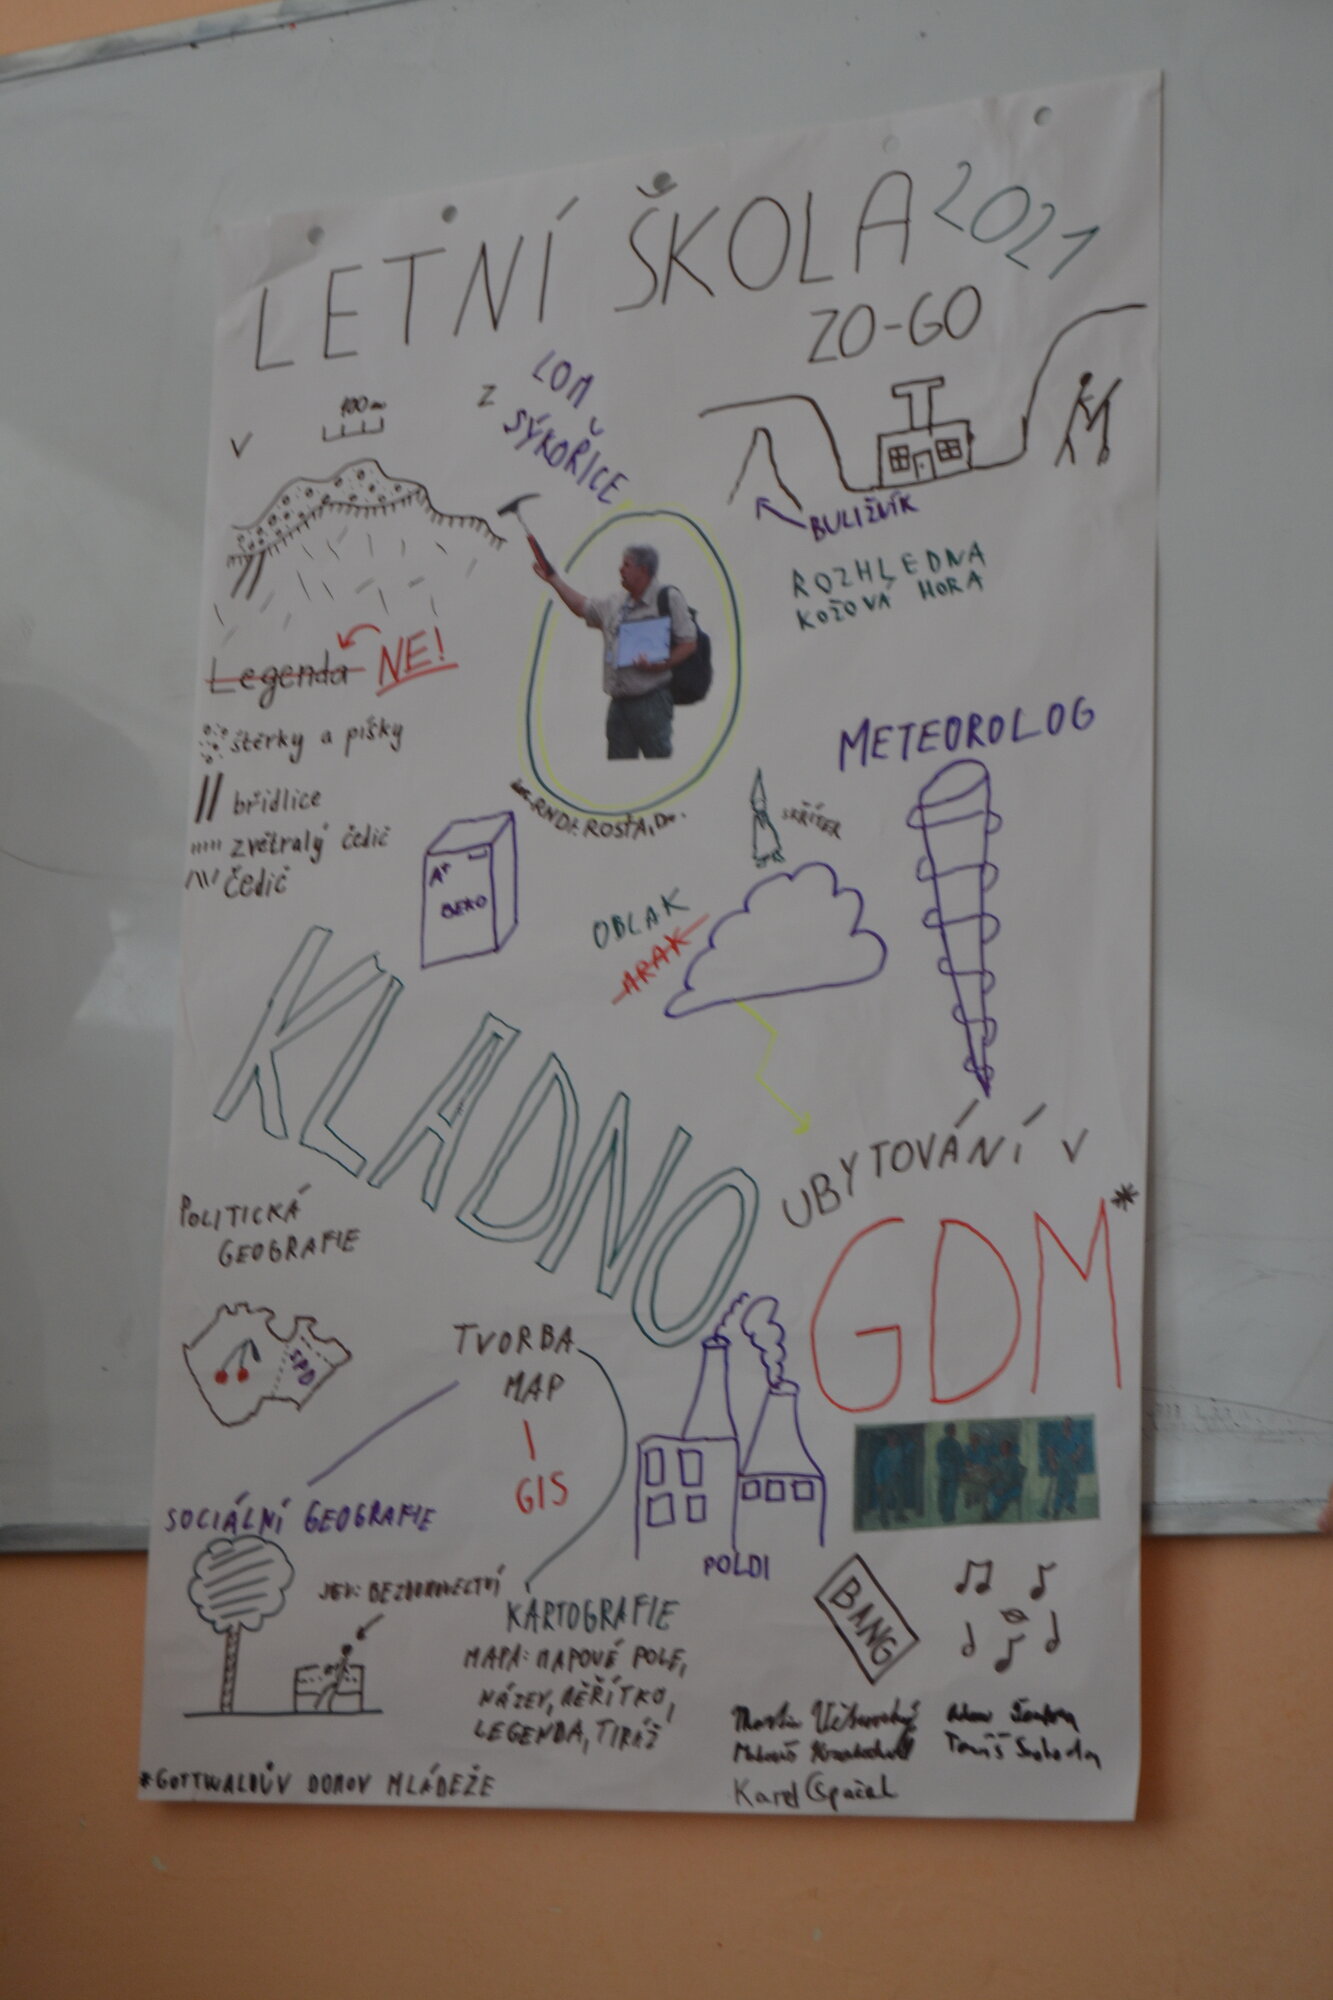 LETNÍ ŠKOLA 2021
ZO-GO
V
100m
Z
LOM
SÝKOŘICE
BULIŽNÍK
ROZHLEDNA
KOŽOVA HORA
Legenda NE!
štěrky a písky
břidlice
zvětralý čedič
čedič
RNDr. ROSŤA, Dr.
A+
BEKO
METEOROLOG
SKŘÍTEK
OBLAK
ARAK
KLADNO
UBYTOVÁNÍ V
GDM*
POLITICKÁ
GEOGRAFIE
SPD
TVORBA
MAP
GIS
POLDI
SOCIÁLNÍ GEOGRAFIE
JEV: BEZDOMOVECTVÍ
KARTOGRAFIE
MAPA: MAPOVÉ POLE,
NÁZEV, MĚŘÍTKO,
LEGENDA, TIRÁŽ
BANG
Tomáš Svoboda
Karel
*GOTTWALDŮV DOMOV MLÁDEŽE